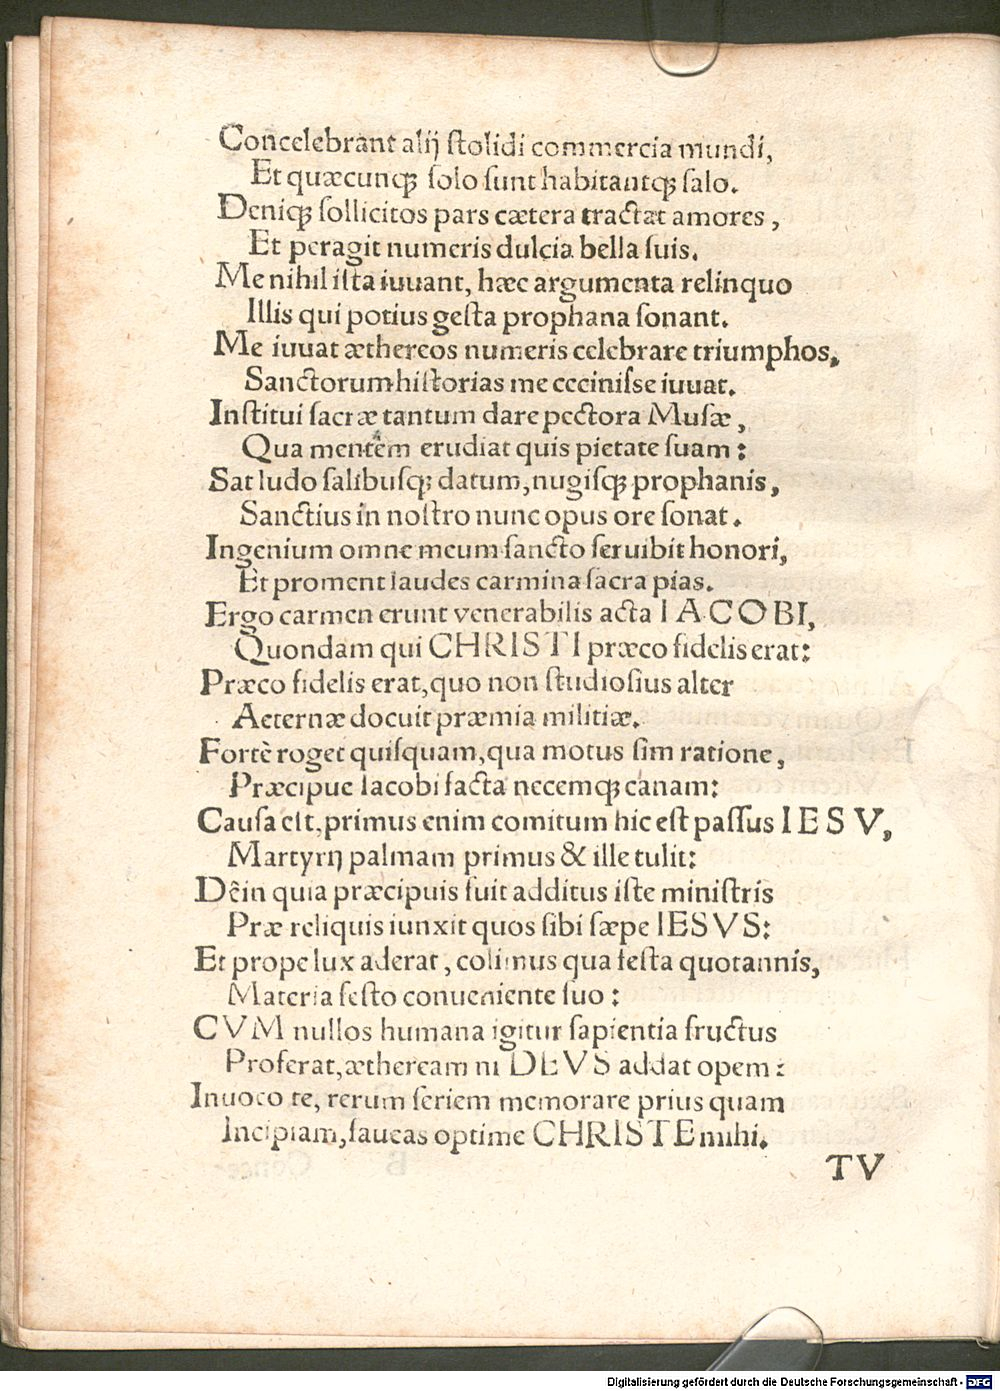 Concelebrant alij ſtolidi commercia mundi,
Et quæcunqꝫ ſolo ſunt habitantqꝫ ſalo.
Deniqꝫ ſollicitos pars cætera tractat amores,
Et peragit numeris dulcia bella ſuis.
Me nihil iſta iuuant, hæc argumenta relinquo
Illis qui potius geſta prophana ſonant.
Me iuuat æthereos numeris celebrare triumphos,
Sanctorum hiſtorias me ceciniſse iuuat.
Inſtitui ſacræ tantum dare pectora Muſæ,
Qua mentem erudiat quis pietate ſuam:
Sat ludo ſalibuſq; datum, nugiſqꝫ prophanis,
Sanctius in noſtro nunc opus ore ſonat.
Ingenium omne meum ſancto ſeruibit honori,
Et proment laudes carmina ſacra pias.
Ergo carmen erunt venerabilis acta IACOBI,
Quondam qui CHRISTI præco fidelis erat:
Præco fidelis erat, quo non ſtudioſius alter
Aeternæ docuit præmia militiæ.
Fortè roget quiſquam, qua motus ſim ratione,
Præcipue Iacobi facta necemqꝫ canam:
Cauſa eſt, primus enim comitum hic eſt paſſus IESV,
Martyrij palmam primus & ille tulit:
Dêin quia præcipuis fuit additus iſte miniſtris
Præ reliquis iunxit quos ſibi ſæpe IESVS:
Et prope lux aderat, colimus qua feſta quotannis,
Materia feſto conueniente ſuo:
CVM nullos humana igitur ſapientia fructus
Proferat, ætheream ni DEVS addat opem:
Inuoco te, rerum ſeriem memorare prius quam
Incipiam, faueas optime CHRISTE mihi.
TV
Digitalisierung gefördert durch die Deutsche Forschungsgemeinschaft - DFG